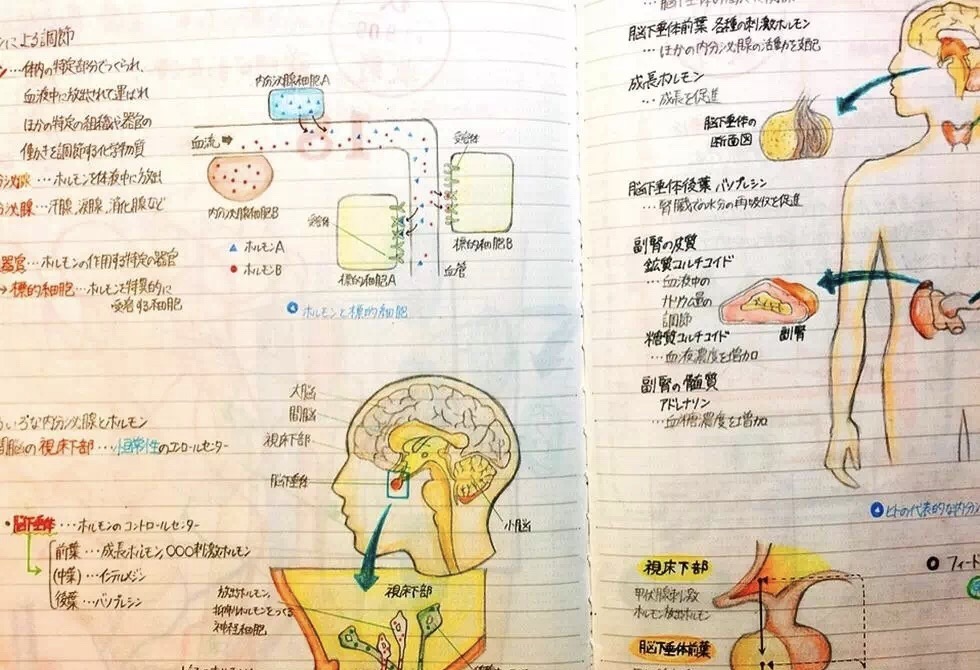 による調節
ン…体内の特定部分でつくられ、
血液中に放出されて運ばれ
ほかの特定の組織や器官の
働きを調節する化学物質
分泌腺…ホルモンを体液中に放出
分泌腺…汗腺、涙腺、消化腺など
器官…ホルモンの作用する特定の器官
→標的細胞…ホルモンを特異的に
受容する細胞
内分泌腺細胞A
血流
内分泌腺細胞B
受容体
受容体
標的細胞B
標的細胞A
血管
▲ ホルモンA
● ホルモンB
ホルモンと標的細胞
ろいろな内分泌腺とホルモン
間脳の視床下部…恒常性のコントロールセンター
・脳下垂体…ホルモンのコントロールセンター
前葉…成長ホルモン、○○○刺激ホルモン
(中葉)…インテルメジン
後葉…バソプレシン
大脳
間脳
視床下部
脳下垂体
小脳
視床下部
放出ホルモン、
抑制ホルモンをつくる
神経細胞
脳下垂体前葉 各種の刺激ホルモン
…ほかの内分泌腺の活動を支配
成長ホルモン
…成長を促進
脳下垂体の
断面図
脳下垂体後葉 バソプレシン
…腎臓での水分の再吸収を促進
副腎の皮質
鉱質コルチコイド
…血液中の
ナトリウム量の
調節
副腎
糖質コルチコイド
…血液濃度を増加
副腎の髄質
アドレナリン
…血糖濃度を増加
ヒトの代表的な内分
視床下部
甲状腺刺激
ホルモン放出ホルモン
脳下垂体前葉
フィード